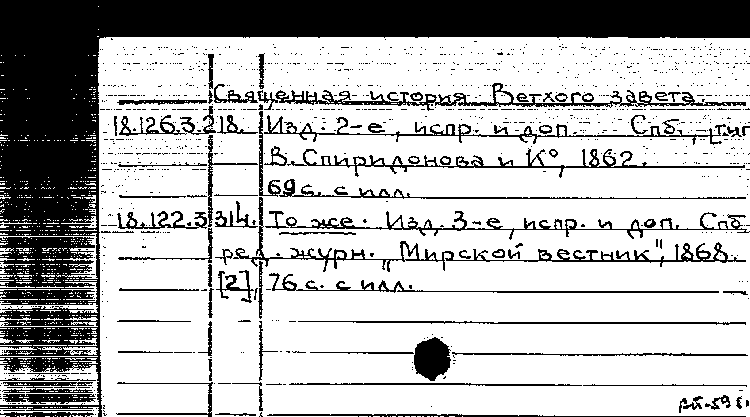 Священная история Ветхого завета.
18.126.3.218. Изд. 2-е, испр. и доп. Спб., [тип
В. Спиридонова и К°, 1862.
69 с. с илл.
18.122.3.314. То же. Изд. 3-е, испр. и доп. Спб
ред. журн. "Мирской вестник", 1868.
[2], 76 с. с илл.